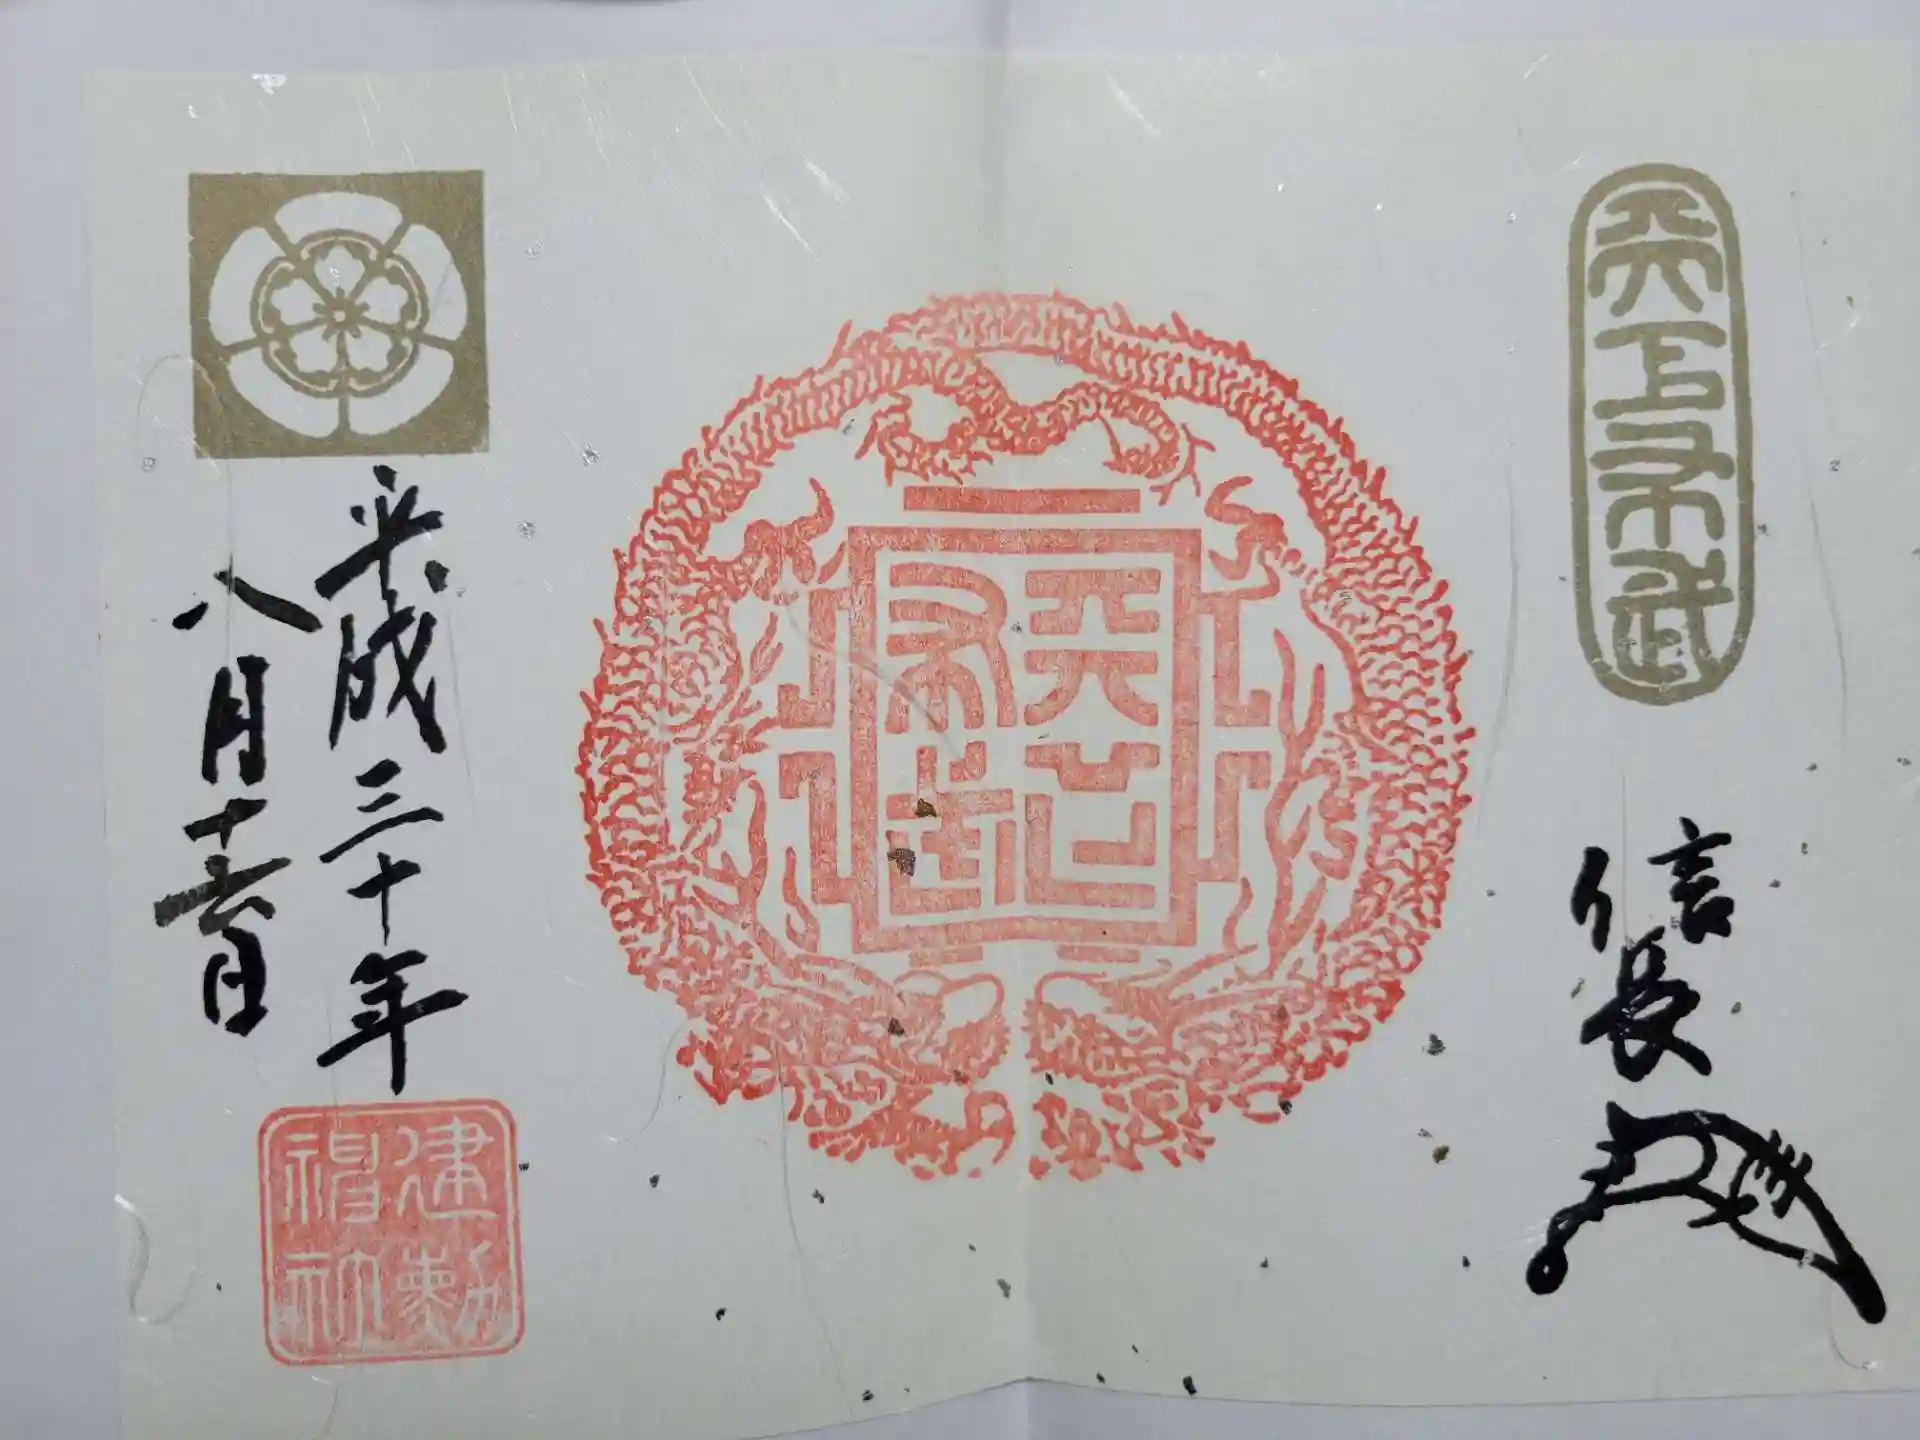 天下布武
信長
天下布武
平成三十年
八月十六日
建勲
神社